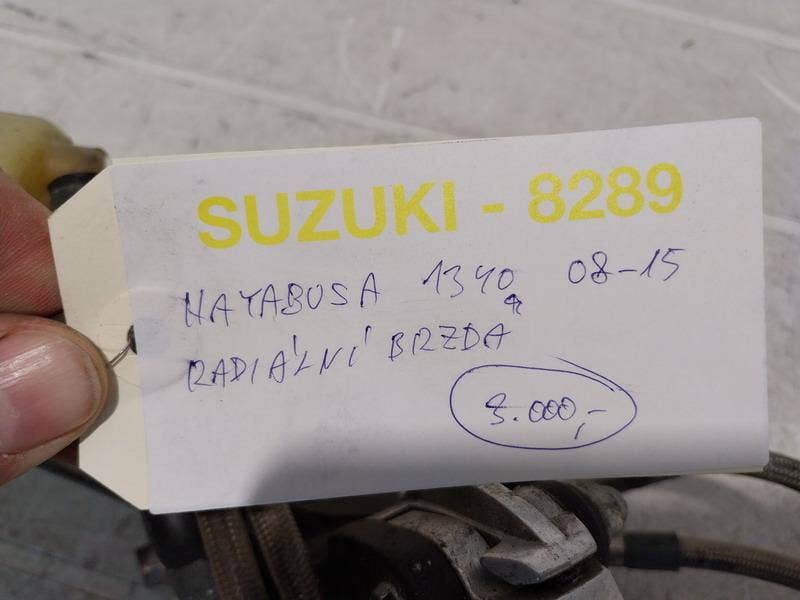 SUZUKI - 8289
HAYABUSA 1340 08-15
RADIÁLNÍ BRZDA
3.000,-